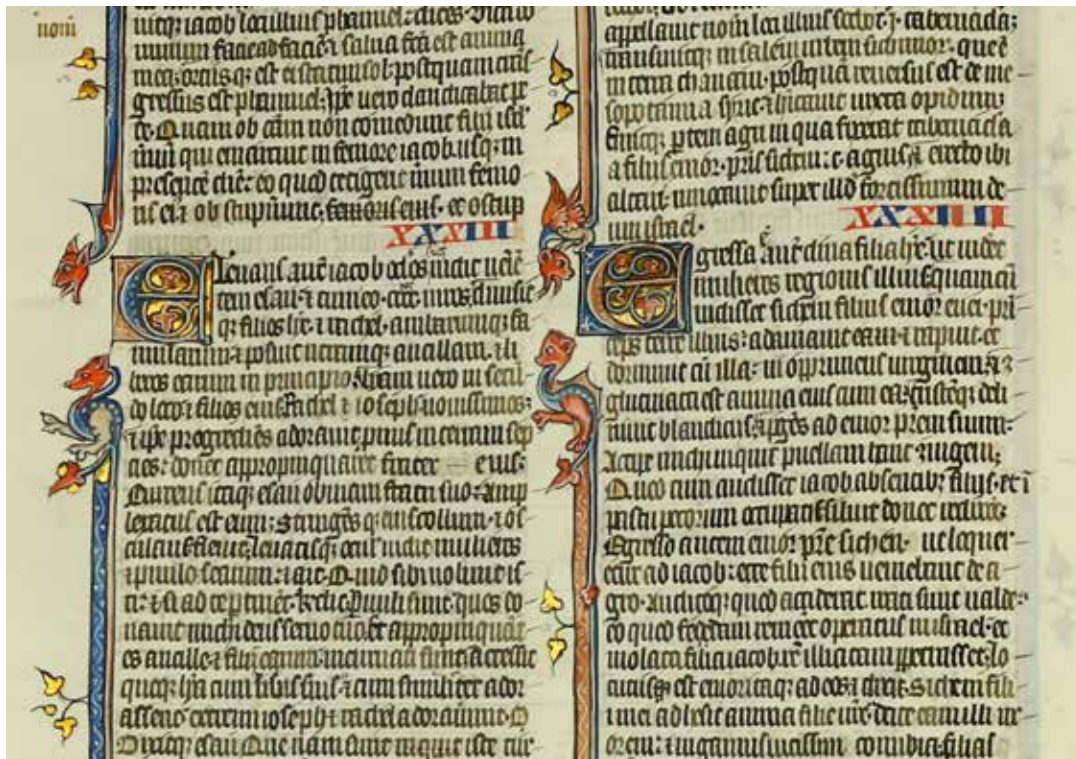 nom
uitq; iacob loci illius phanuel. dicens. Vidi do
minum facie ad facie. & salua fcā est anima
mea. ortus q; est ei statim sol. postquam trans
gressus est phanuel. Ipe uero claudicabat pe
de. Quam ob cām non comedunt filii isrl
neruū qui emarcuit in femore iacob. usq; in
presente diē. eo quod tetigerit neruū femo
ris ei. & ob stupuerit. femoris eius. et ostup
XXXIII
Eleuans autē iacob oclos
tem esau. & cum eo. cccc. uiros. diuisit
q; filios lie. & rachel. ambarumq; fa
mularum. & posuit utramq; ancillam. & li
beros earum in principio. liam uero in secū
do loco. & filios eius. Rachel & ioseph nouissimos.
& ipe progrediēs adorauit pnus in terram sep
ties. donec appropinquaret frater eius.
Currens itaq; esau obuiam fratri suo. amp
lexatus est eum. stringēs q; eius collum. & os
culans fleuit. leuatisq; oculis uidit mulieres
& paruulos earum. & ait. Quid sibi uolunt is
ti. & si ad te pertinēt. Rndit. Paruuli sunt. quos do
nauit michi deus seruo tuo. Et appropinquāt
es ancille. & filii earum. incuruati sunt. accessit
quoq; lya cum liberis suis. & cum similiter ador
assent. extremi ioseph & rachel adorauerunt. D
ixitq; esau. Que nam sunt inquit iste tur
appellauit nom loci illius sochot. i. tabernacla.
transiuitq; in salem urbem sichimor. que ē
in terra chanaan. postquā reuersus est de me
sopotamia syrie. & habitauit iuxta opidum.
Emitq; partem agri in qua fixerat tabernacula
a filiis emor. pris sichem. c. agnis. & erecto ibi
altari. inuocauit super illd fortissimum de
um israel.
XXXIIII
Egressa autē dina filia lye. ut uidēt
mulieres regionis illius. Quam cū
uidisset sichem filius emor euei. pri
ceps terre illius. adamauit eam. & rapuit. et
dormiuit cū illa. ui opprimens uirginem. &
glutinata est anima eius cum ea. tristēq; deli
niuit blandiciis. & pgēs ad emor prem suum.
Accipe michi inquit puellam hanc coniugem.
Quod cum audisset iacob absentibz filiis. et ī
pastu pecorum occupatis. siluit donec redirēt.
Egresso autem emor pre sichen. ut loquer
etur ad iacob. ecce filii eius ueniebant de a
gro. auditoq; quod acciderat. irati sunt ualde.
eo quod fedam rem esset operatus in israel. et
uiolata filia iacob. rē illicitam perpetrasset. Lo
cutusq; est emor itaq; ad eos. & dixit. Sichem fili
i mei adhesit anima filie ure. date eam illi ux
orem. & iungamus uicissim conubia. filias